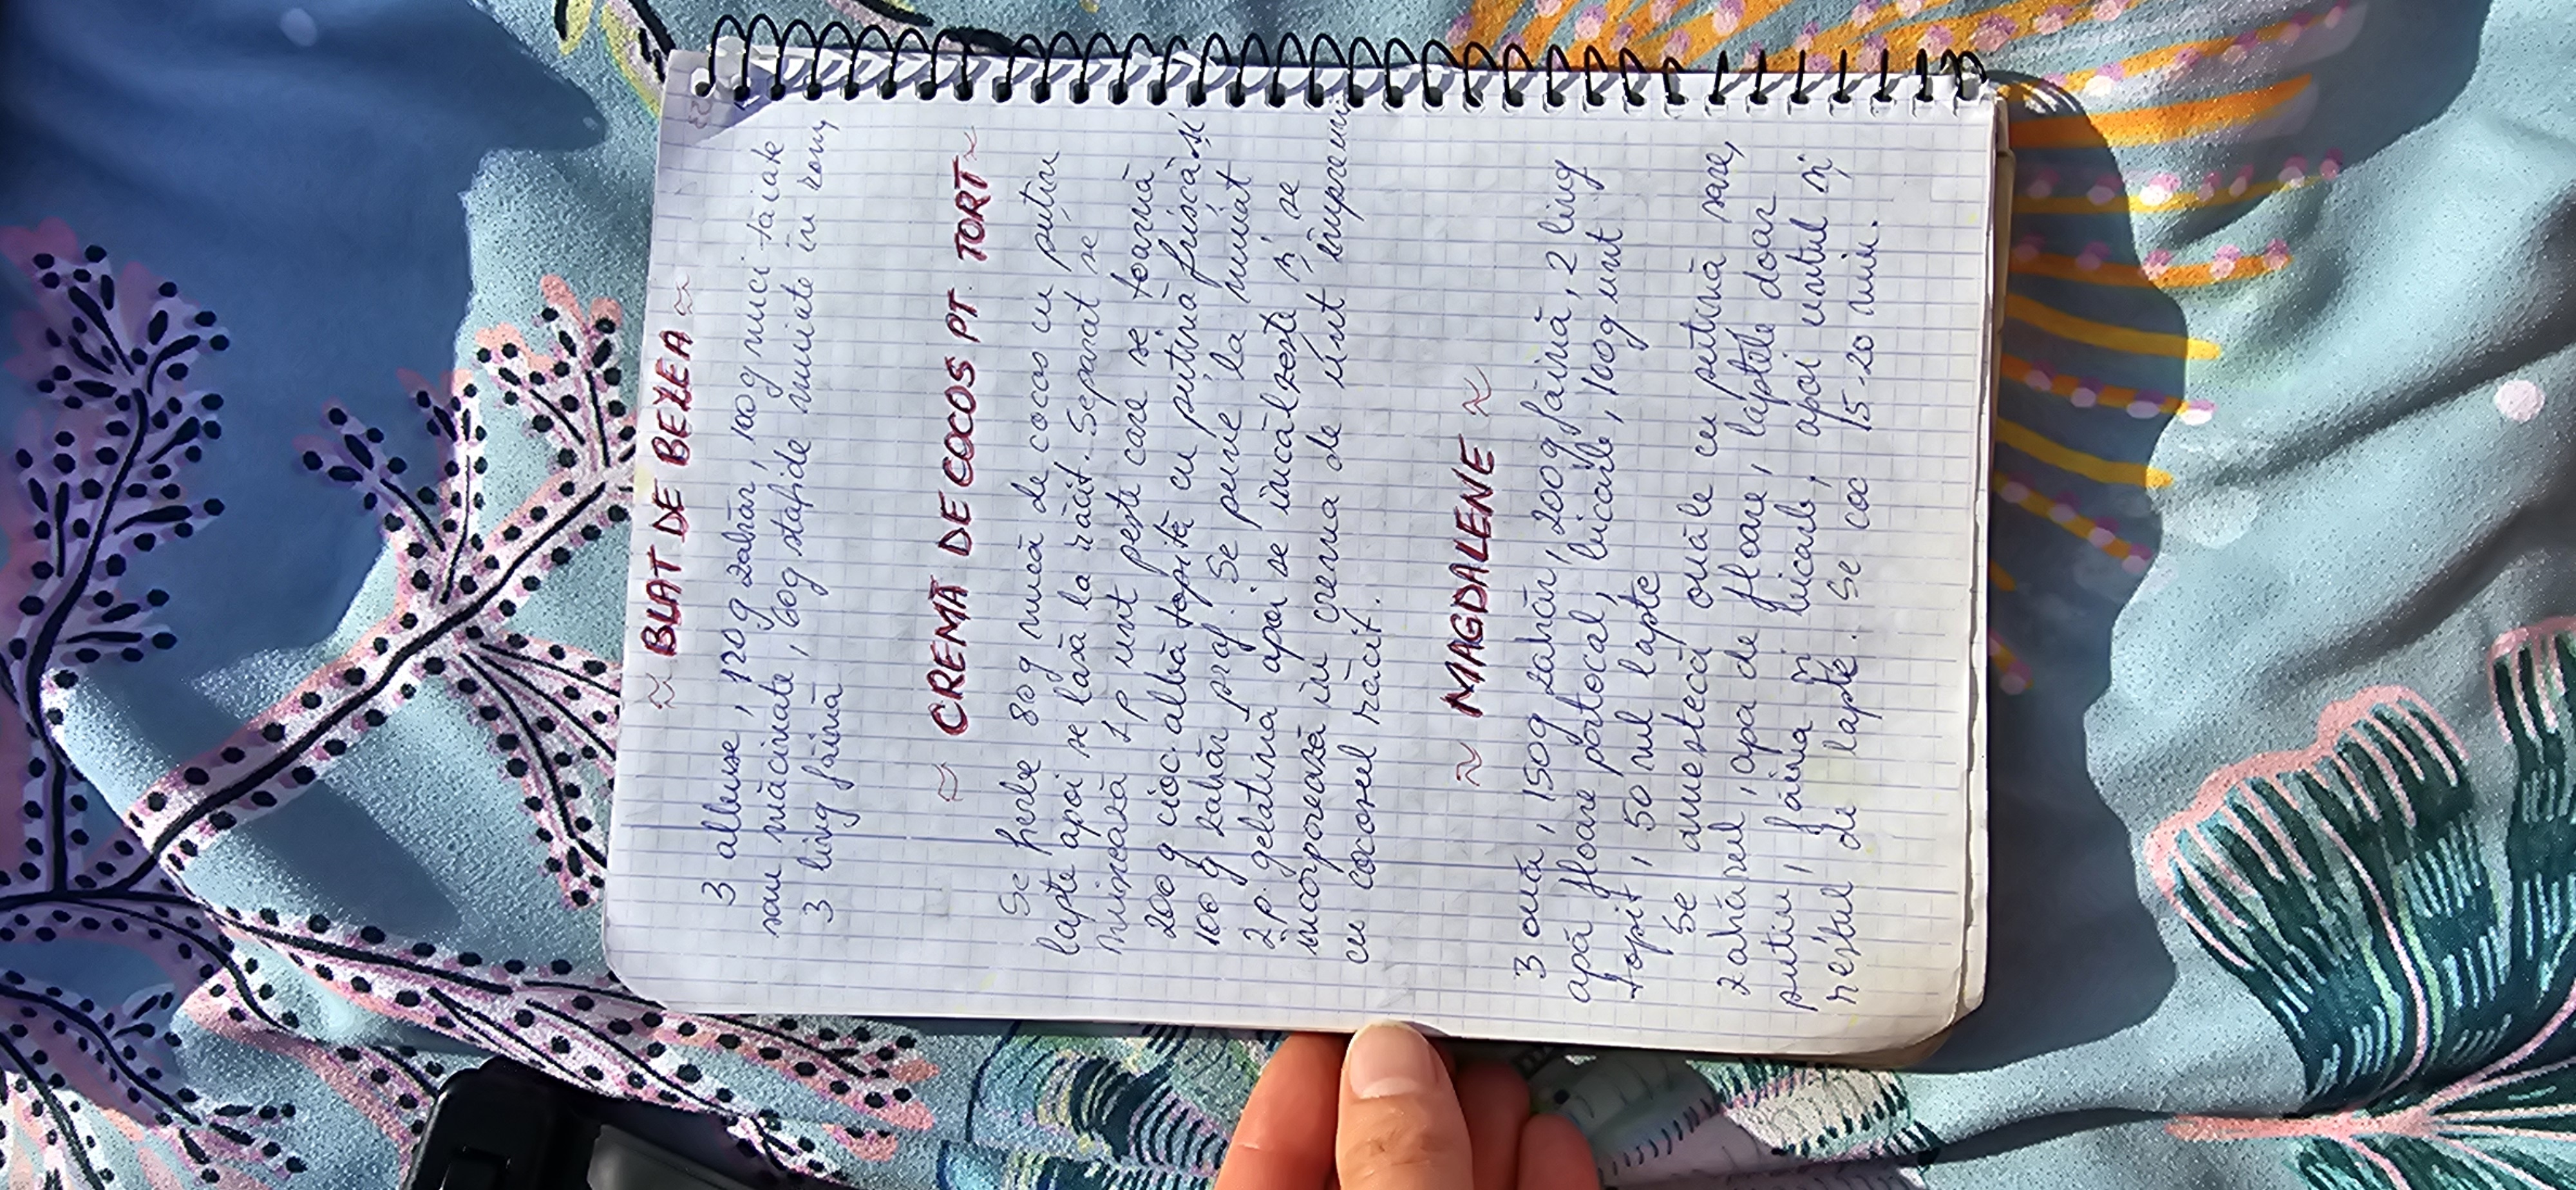 ≈ BLAT DE BEZEA ≈
3 albuse, 120g zahăr, 100g nuci tăiate
sau măcinate, 60g stafide muiate în rom,
3 ling făină
≈ CREMĂ DE COCOS PT. TORT ~
Se fierbe 80g nucă de cocos cu puțin
lapte apoi se lasă la răcit. Separat se
mixează 1p unt peste care se toarnă
200g cioc. albă topită cu puțină frișcă și
100g zahăr praf. Se pune la muiat
2p. gelatină apoi se încălzește și se
incorporează în crema de unt împreun
cu cocosul răcit.
≈ MAGDALENE ≈
3 ouă, 150g zahăr, 200g făină, 2 ling
apă floare portocal, bicarb, 100g unt
topit, 50 ml lapte
Se amestecă ouăle cu puțină sare,
zahărul, apa de floare, laptele doar
puțin, făina și bicarb, apoi untul și
restul de lapte. Se coc 15-20 min.